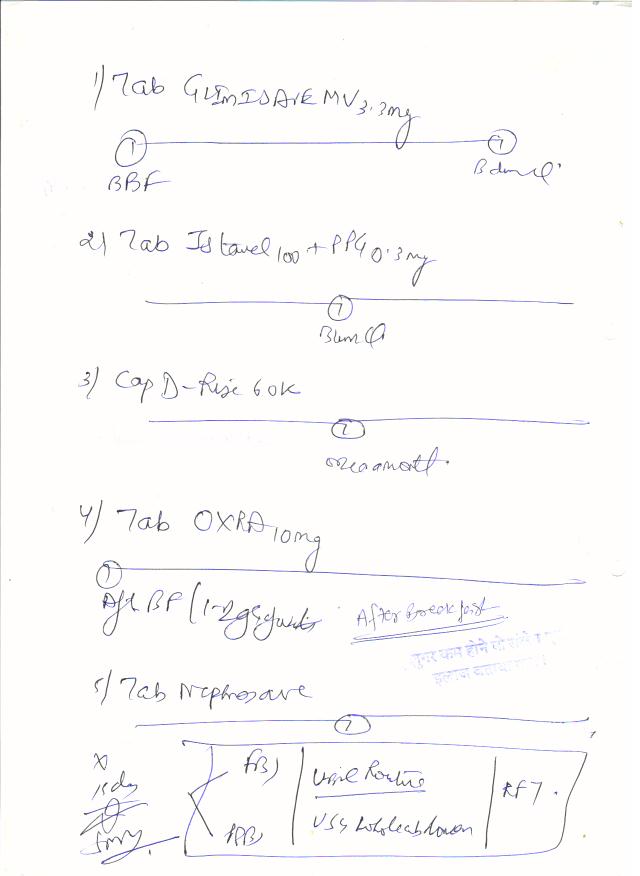 1) Tab GLIMISAVE MV 3.3mg
1 1
BBF B dinner
2) Tab Istavel 100 + PPG 0.3mg
1
B lunch
3) Cap D-Rise 60K
1
once a month
4) Tab OXRA 10mg
1
Aft BF (1-2 After Breakfast
शुगर कम होने
5) Tab Nephrosave
1
X FBS Urine Routine RFT.
15 day PPBS USG Whole abdomen